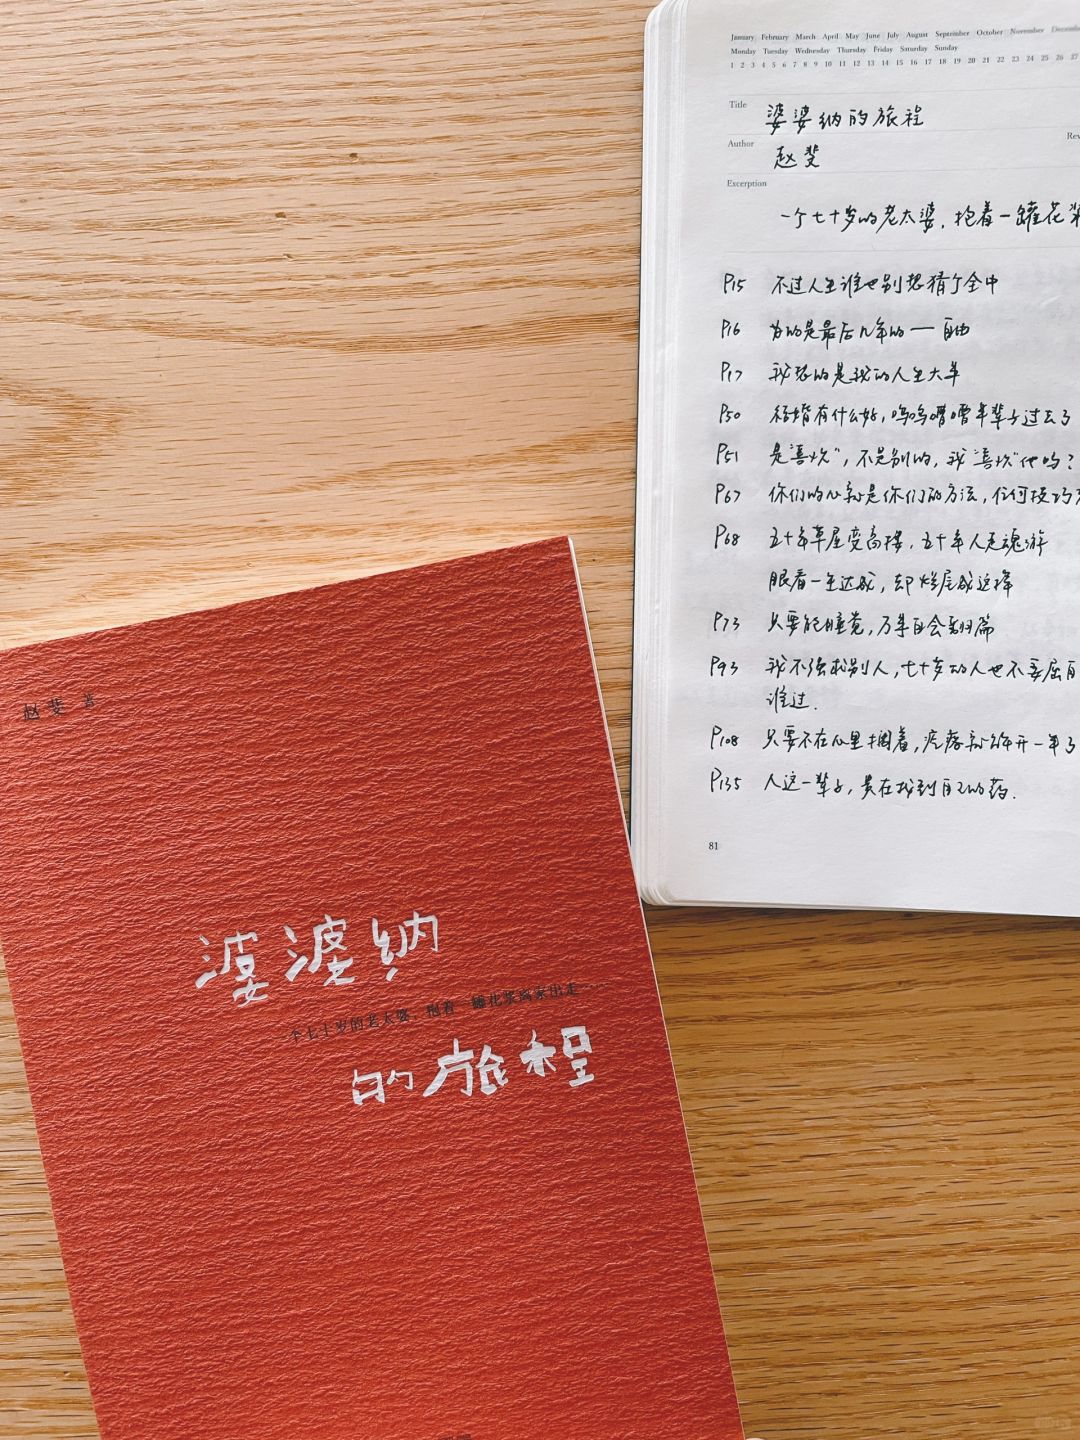 赵斐 著
婆婆纳
一个七十岁的老太婆，抱着一罐花浆离家出走——
的旅程
January February March April May June July August September October November December
Monday Tuesday Wednesday Thursday Friday Saturday Sunday
1 2 3 4 5 6 7 8 9 10 11 12 13 14 15 16 17 18 19 20 21 22 23 24 25 26 27
Title 婆婆纳的旅程
Author 赵斐
Excerption
一个七十岁的老太婆，抱着一罐花浆
P15 不过人生谁也别想猜个全中
P16 为的是最后几年的——自由
P17 我想的是我的人生大事
P50 结婚有什么好，呜呜嘈嘈半辈子过去了
P51 是“喜欢”，不是别的，我“喜欢”他吗？
P67 你们的心就是你们的方法，任何技巧
P68 五十年草屋变高楼，五十年人是魂游
眼看一生达成，却烂尾成这样
P73 只要能睡觉，万事自会翻篇
P93 我不强求别人，七十岁的人也不委屈自
谁过.
P108 只要不在心里捆着，疙瘩就解开一半了
P135 人这一辈子，贵在找到自己的药.
81